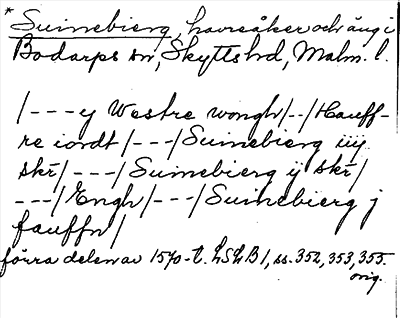 * Suinebierg, havreåker och äng i
Bodarps sn, Skytts hd, Malm. l.
/---y Westre wongh/--/Hauff-
re iordt/---/Suinebierg iiij
skr/---/Suinebierg ij skr/
---/Engh/---/Suinebierg j
fauffn/
förra delen av 1570-t. LSLB 1, ss. 352, 353, 355.
orig.